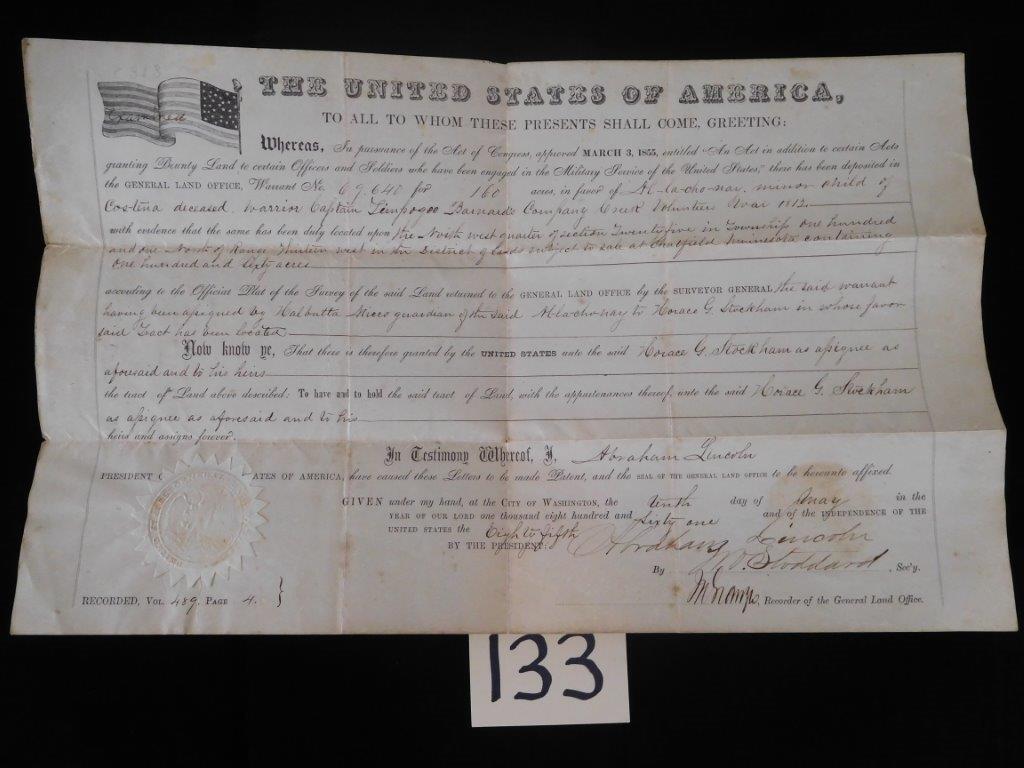 Examined
THE UNITED STATES OF AMERICA,
TO ALL TO WHOM THESE PRESENTS SHALL COME, GREETING:
Whereas, In pursuance of the Act of Congress, approved MARCH 3, 1855, entitled "An Act in addition to certain Acts
granting Bounty Land to certain Officers and Soldiers who have been engaged in the Military Service of the United States," there has been deposited in
the GENERAL LAND OFFICE, Warrant No. 69,640 for 160 acres, in favor of Al-la-cho-nay, minor child of
Cos-tena deceased Warrior Captain Timpogee Barnard's Company Creek Volunteers War 1812
with evidence that the same has been duly located upon the North west quarter of section Twenty five in Township One hundred
and one North of Range Thirteen west in the District of lands subject to sale at Chatfield Minnesota containing
One hundred and sixty acres
according to the Official Plat of the Survey of the said Land returned to the GENERAL LAND OFFICE by the SURVEYOR GENERAL the said warrant
having been assigned by Halbutta Micco guardian of the said Al-la-cho-nay to Horace G. Stockham in whose favor
said Tract has been located
Now know ye, That there is therefore granted by the UNITED STATES unto the said Horace G. Stockham as assignee as
aforesaid and to his heirs
the tract of Land above described: To have and to hold the said tract of Land, with the appurtenances thereof, unto the said Horace G. Stockham
as assignee as aforesaid and to his
heirs and assigns forever.
In Testimony Whereof, I, Abraham Lincoln
PRESIDENT O ATES OF AMERICA, have caused these Letters to be made Patent, and the SEAL OF THE GENERAL LAND OFFICE to be hereunto affixed.
GIVEN under my hand, at the CITY OF WASHINGTON, the tenth day of May in the
YEAR OF OUR LORD one thousand eight hundred and Sixty one and of the INDEPENDENCE OF THE
UNITED STATES the Eighty fifth
BY THE PRESIDENT: Abraham Lincoln
By W. O. Stoddard, Sec'y.
RECORDED, VOL. 489, PAGE 4. } Recorder of the General Land Office.
133